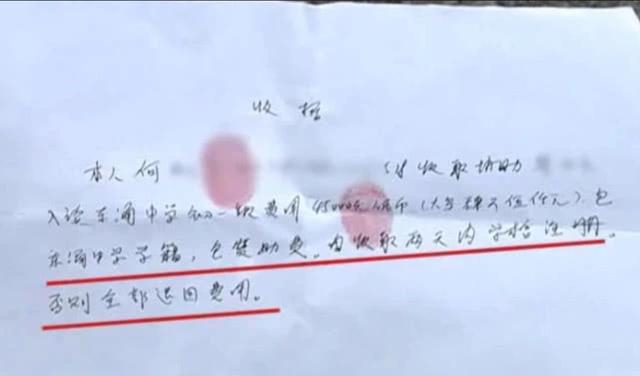 收据
本人何 收取协助
入读东涌中学初一级费用45000元人民币(大写肆万伍仟元)。包
东涌中学学籍,包赞助费。由收取两天内学校注册。
否则全部退回费用。